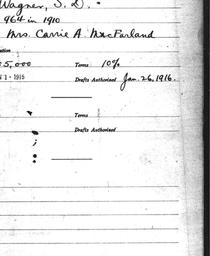 Wagner, S. D.
964 in 1910
Mrs. Carrie A. MacFarland
5,000 Terms 10%
1 - 1916 Drafts Authorized Jan. 26, 1916.
Terms
Drafts Authorized